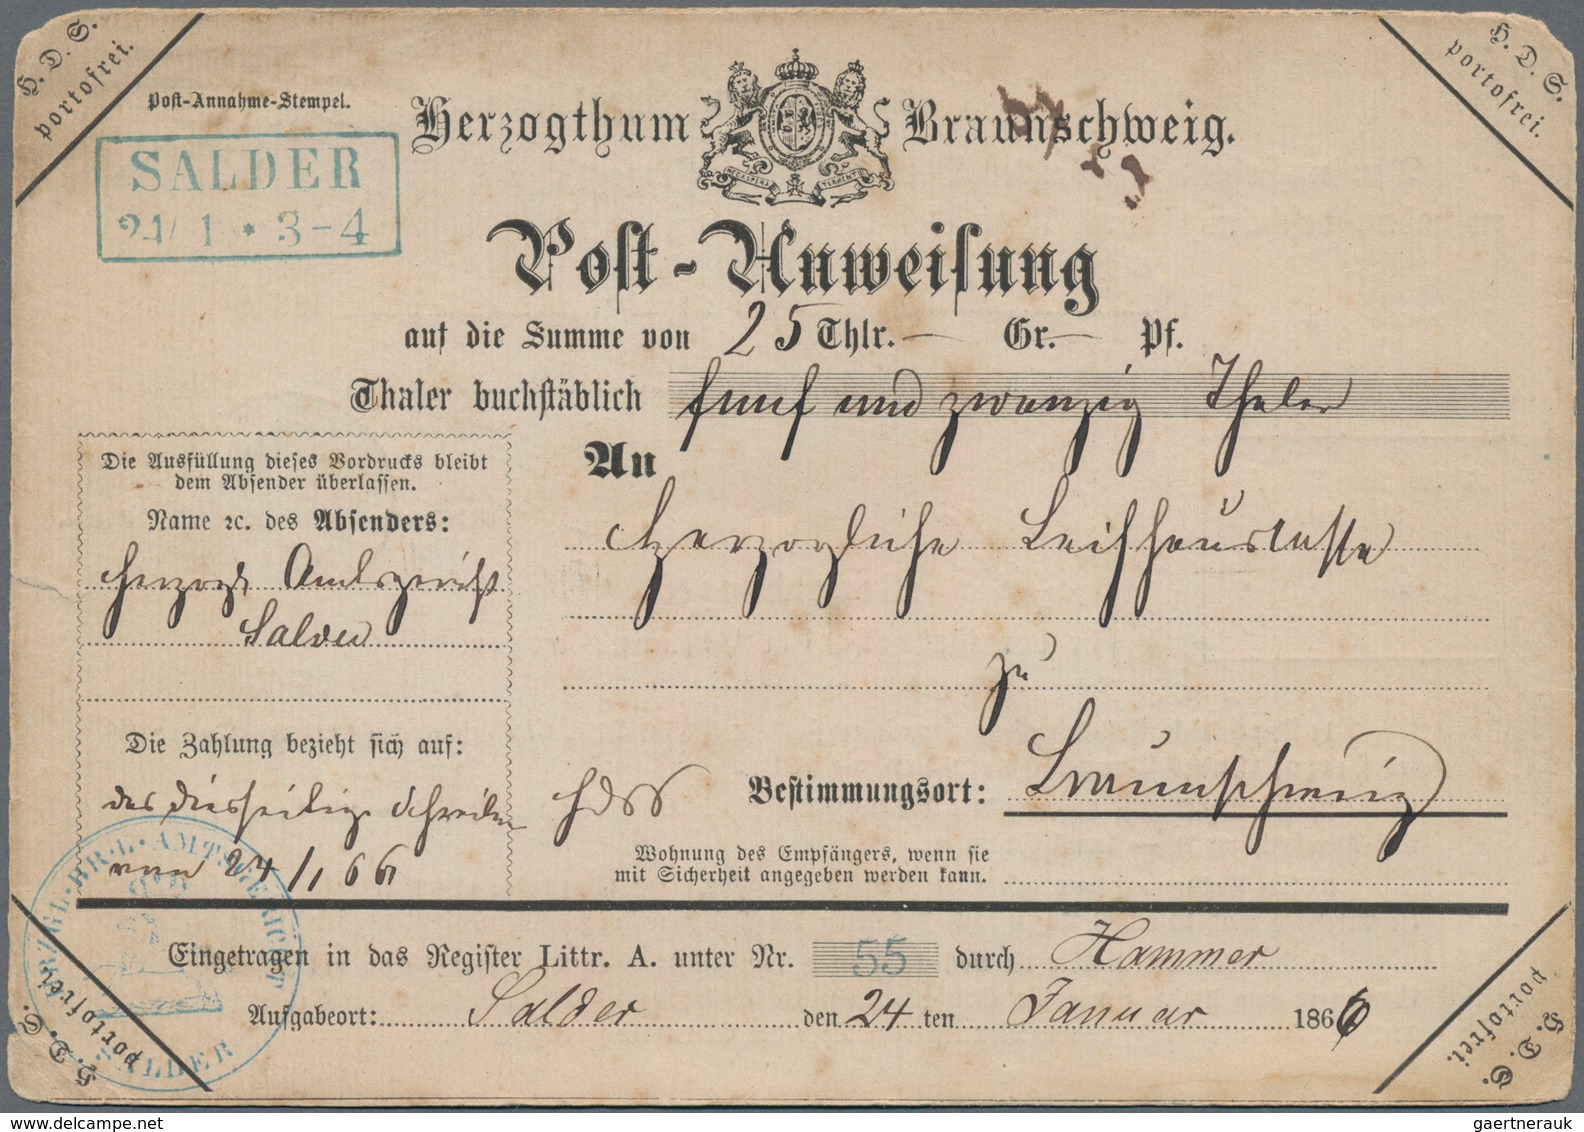 H. D. S.
portofrei.
H. D. S.
portofrei.
Post-Annahme-Stempel.
SALDER
24/ 1 * 3-4
Herzogthum Braunschweig.
NEC ASPERA TERRENT
Post-Anweisung
auf die Summe von 25 Thlr. — Gr. — Pf.
Thaler buchstäblich fünf und zwanzig Thaler
Die Ausfüllung dieses Vordrucks bleibt
dem Absender überlassen.
Name ꝛc. des Absenders:
Herzogl. Amtsgericht
Salder
An
Herzogliche Leihhauskasse
zu
Die Zahlung bezieht sich auf:
das diesseitige Schreiben
vom 24/1 66
HDSS
Bestimmungsort: Braunschweig
Wohnung des Empfängers, wenn sie
mit Sicherheit angegeben werden kann.
HERZGL. BR. L. AMTSGERICHT
SALDER
Eingetragen in das Register Littr. A. unter Nr. 55 durch Hammer
Aufgabeort: Salder den 24 ten Januar 1866
H. D. S.
portofrei.
H. D. S.
portofrei.
gaertnerauk @ delcampe.net